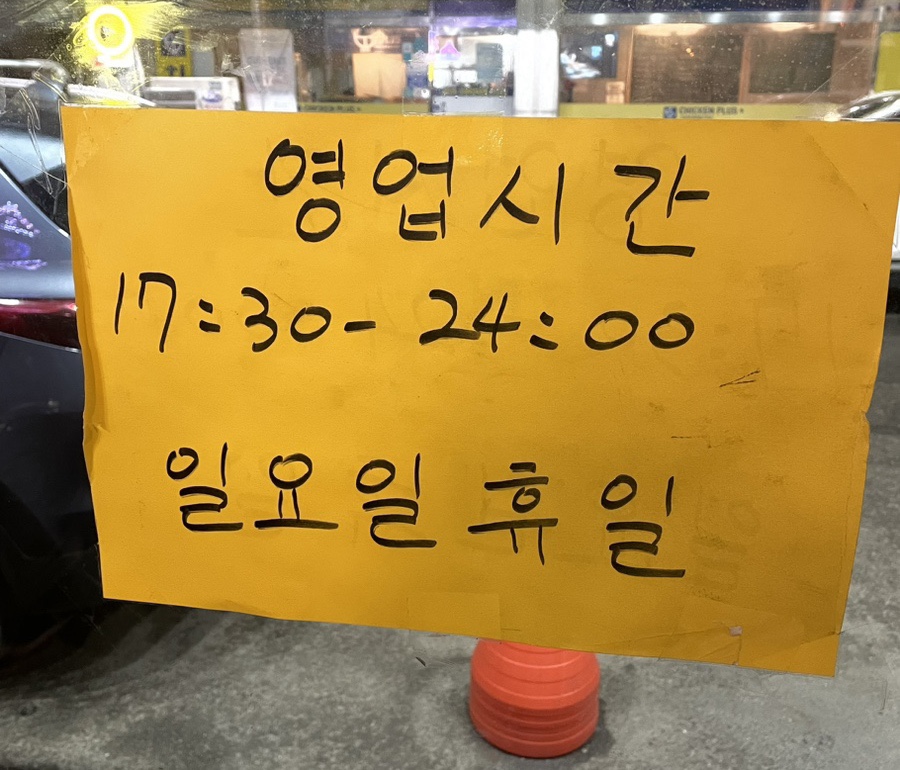 CHICKEN PLUS
영업시간
17:30- 24:00
일요일 휴일